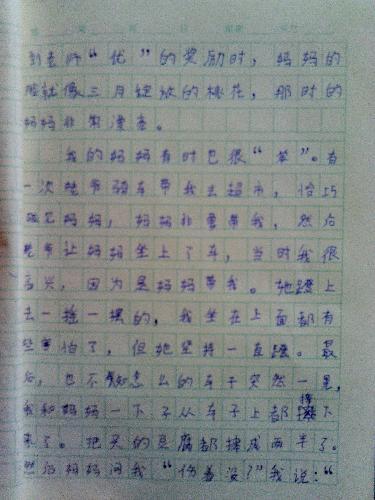 到老师“优”的奖励时，妈妈的
脸就像三月绽放的桃花，那时的
妈妈非常漂亮。
我的妈妈有时也很“笨”。有
一次爸爷骑车带我去超市，恰巧
碰见妈妈，妈妈非要带我，然后
爷爷让妈妈坐上了车，当时我很
高兴，因为是妈妈带我。她蹬上
去一摇一摆的，我坐在上面都有
些害怕了，但她坚持一直蹬。最
后，也不知怎么的车子突然一晃，
我和妈妈一下子从车子上都摔下
来了。把买的豆腐都摔成两半了。
然后妈妈问我“伤着没？”我说：“